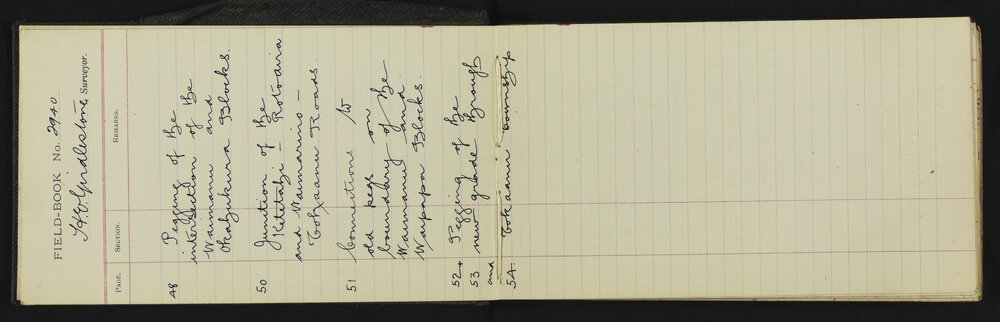 FIELD-BOOK No. 2940
H.E. Girdlestone, Surveyor.
PAGE. SECTION. REMARKS.
48 Pegging of the
intersection of the
Waimanu and
Okahukura Blocks.
50 Junction of the
Ketetahi - Rotoaira
and Waimarino -
Tokaanu Roads.
51 Connections to
old pegs on
boundary of the
Waimanu and
Waipapa Blocks.
52 + Pegging of the
53 new grade through
and
54. Tokaanu township